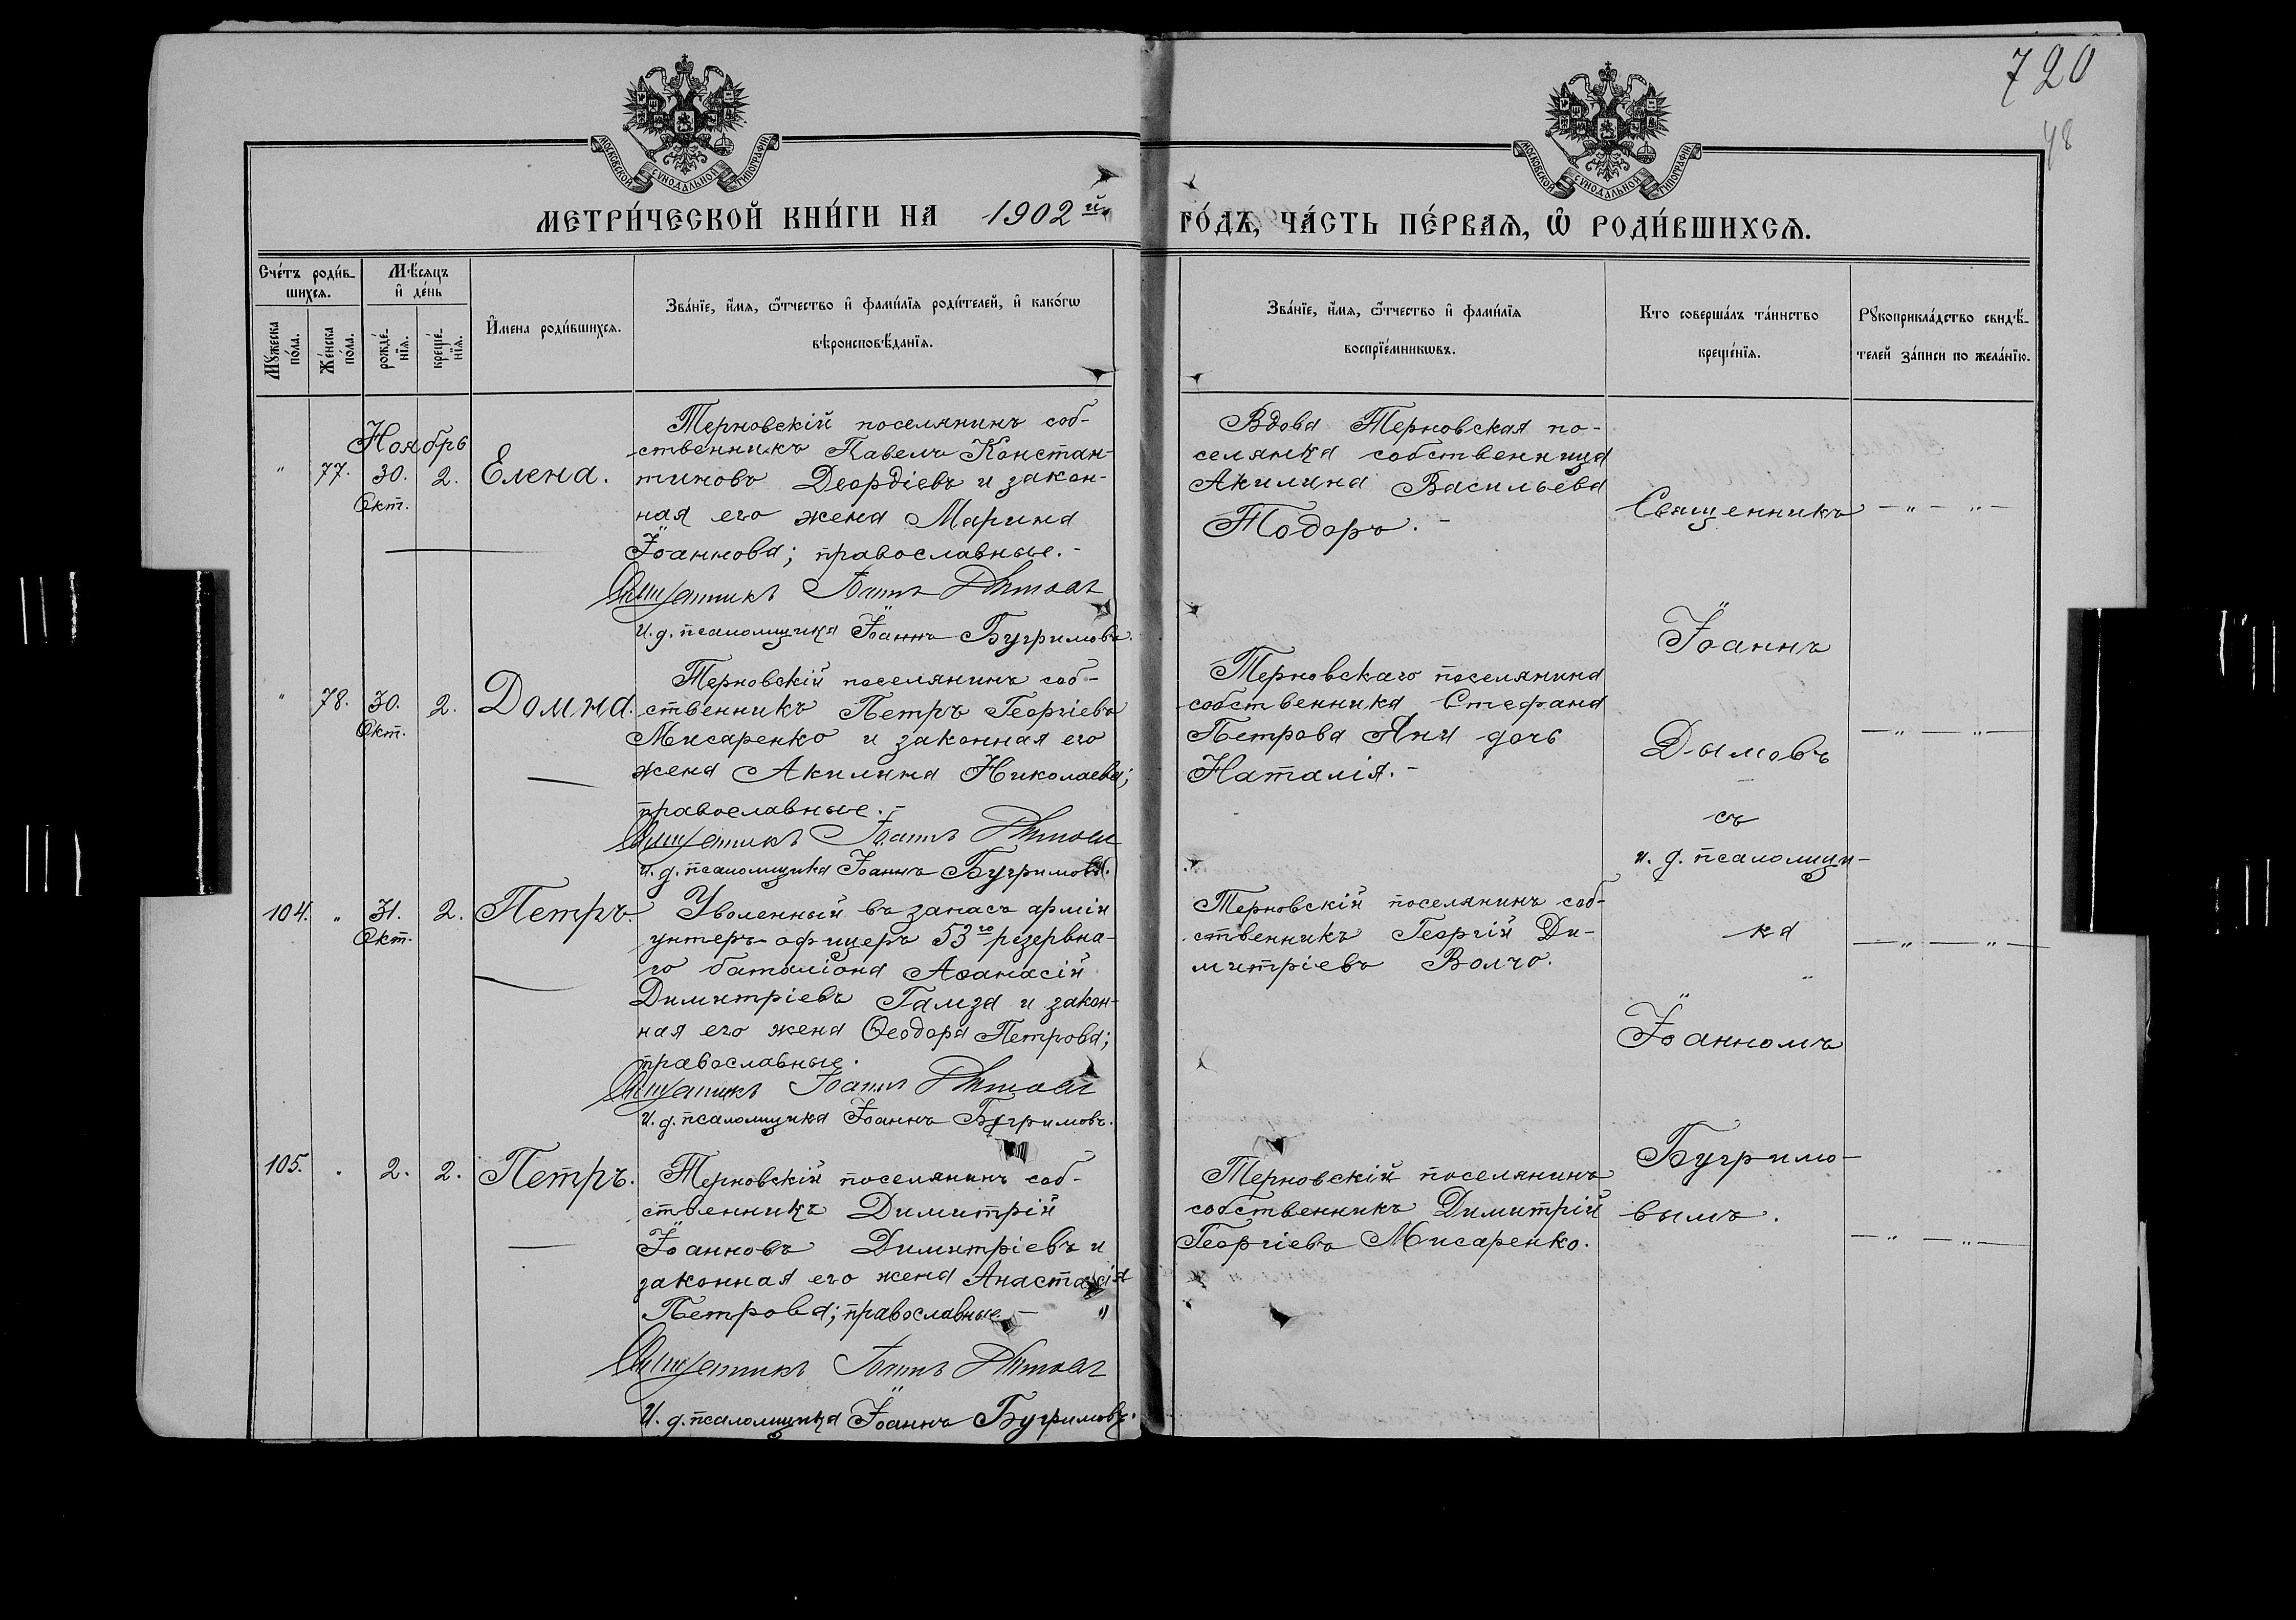 720
48
МОСКОВСКОЙ СѴНОДАЛЬНОЙ ТИПОГРАФІИ
МОСКОВСКОЙ СѴНОДАЛЬНОЙ ТИПОГРАФІИ
МЕТРИ́ЧЕСКОЙ КНИ́ГИ НА 1902й
ГО́ДЪ, ЧА́СТЬ ПЕ́РВАѦ, Ѡ҃ РОДИ́ВШИХСѦ.
Сче́тъ роди́в-
шихсѧ.
Мꙋ́жеска по́ла.
Же́нска по́ла.
Мѣ́сѧцъ
и҆ де́нь
рожде́-
нїѧ.
креще́-
нїѧ.
И҆мена роди́вшихсѧ.
Зва́нїе, и҆́мѧ, ѻ҆́тчество и҆ фами́лїѧ роди́телей, и҆ како́гѡ
вѣроисповѣ́данїѧ.
Зва́нїе, и҆́мѧ, ѻ҆́тчество и҆ фами́лїѧ
воспрїе́мникѡвъ.
Кто соверша́лъ та́инство
креще́нїѧ.
Рꙋкоприкла́дство свидѣ́-
телей за́писи по жела́нїю.
Ноябрь
" 77. 30. 2. Елена.
Окт.
Терновскій поселянинъ соб-
ственникъ Павелъ Констан-
тиновъ Деордіевъ и закон-
ная его жена Марина
Іоаннова; православные.-
Священникъ Іоаннъ Дымовъ
И. д. псаломщика Іоаннъ Бугримовъ.
Вдова Терновская по-
селянка собственница
Акилина Васильева
Тодоръ.-
Священникъ
Іоаннъ
Дымовъ
съ
и. д. псаломщи-
ка
Іоанномъ
Бугримо-
вымъ.
- " - " -
" 78. 30. 2. Домна.
Окт.
Терновскій поселянинъ соб-
ственникъ Петръ Георгіевъ
Мисаренко и законная его
жена Акилина Николаева;
православные.-
Священникъ Іоаннъ Дымовъ
И. д. псаломщика Іоаннъ Бугримовъ.
Терновскаго поселянина
собственника Стефана
Петрова Яни дочь
Наталія.-
- " - " -
104. " 31. 2. Петръ
Окт.
Уволенный въ запасъ арміи
унтеръ-офицеръ 53го резервна-
го баталіона Аѳанасій
Димитріевъ Гамза и закон-
ная его жена Ѳеодора Петрова;
православные.
Священникъ Іоаннъ Дымовъ
И. д. псаломщика Іоаннъ Бугримовъ.
Терновскій поселянинъ соб-
ственникъ Георгій Ди-
митріевъ Волчо.
- " - " -
105. " 2. 2. Петръ.
Терновскій поселянинъ соб-
ственникъ Димитрій
Іоанновъ Димитріевъ и
законная его жена Анастасія
Петрова; православные.-
Священникъ Іоаннъ Дымовъ
И. д. псаломщика Іоаннъ Бугримовъ.
Терновскій поселянинъ
собственникъ Димитрій
Георгіевъ Мисаренко.
- " - " -